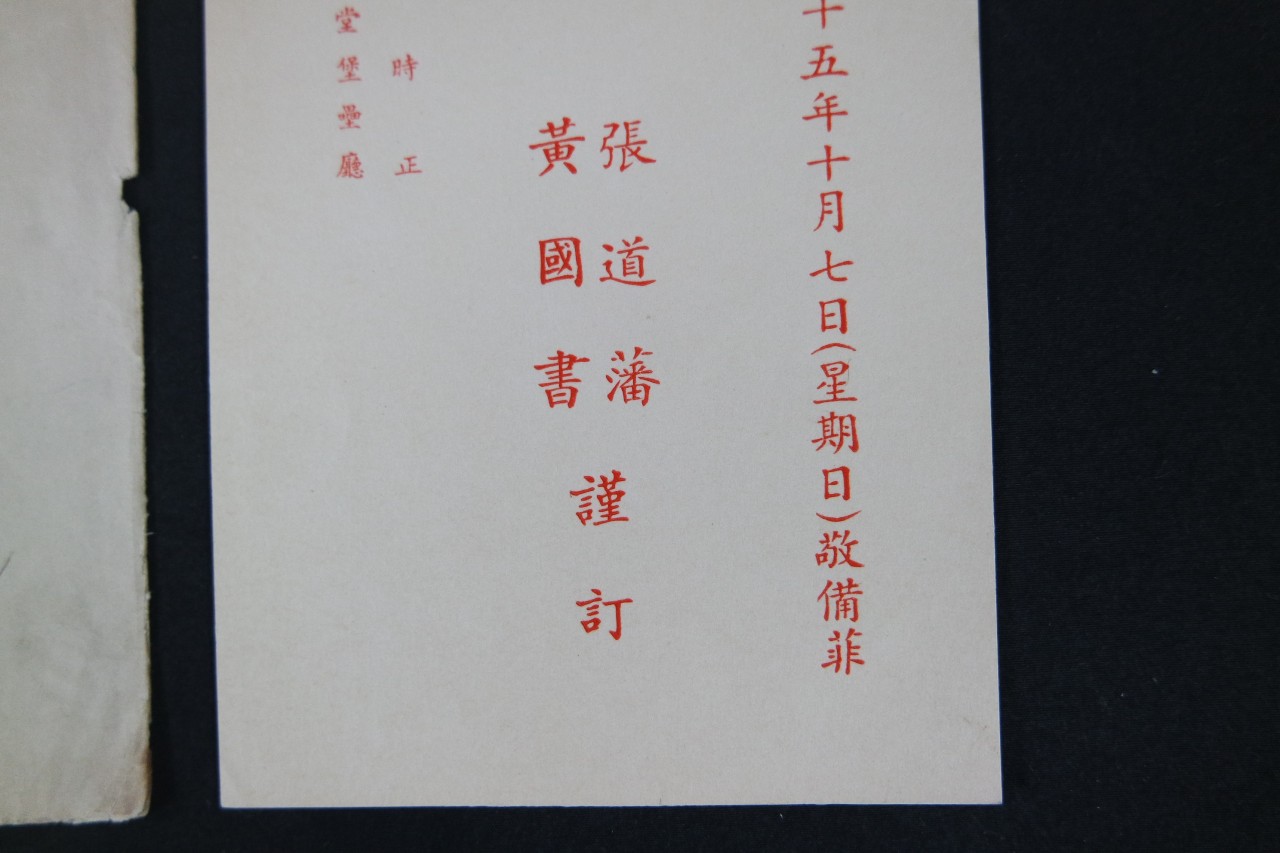 十五年十月七日(星期日)敬備菲
張道藩
黃國書
謹訂
時正
堂堡壘廳